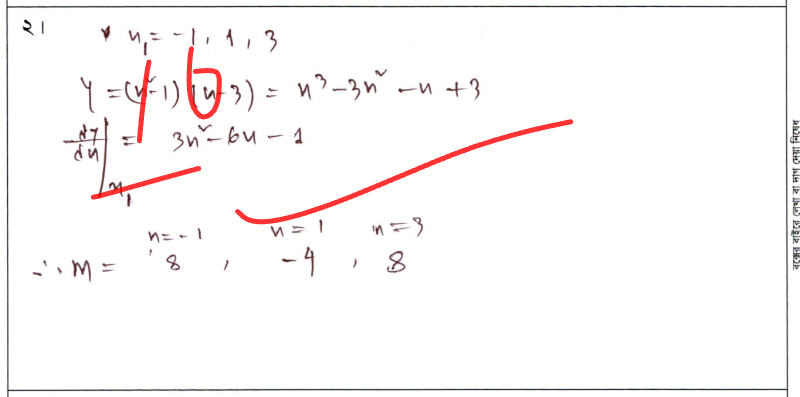 ২১
x₁ = -1, 1, 3
Y = (x²-1) (x-3) = x³ - 3x² - x + 3
dy/dx | x₁ = 3x² - 6x - 1
x = -1 x = 1 x = 3
∴ m = 8, -4, 8
বক্সের বাইরে লেখা বা দাগ দেয়া নিষেধ